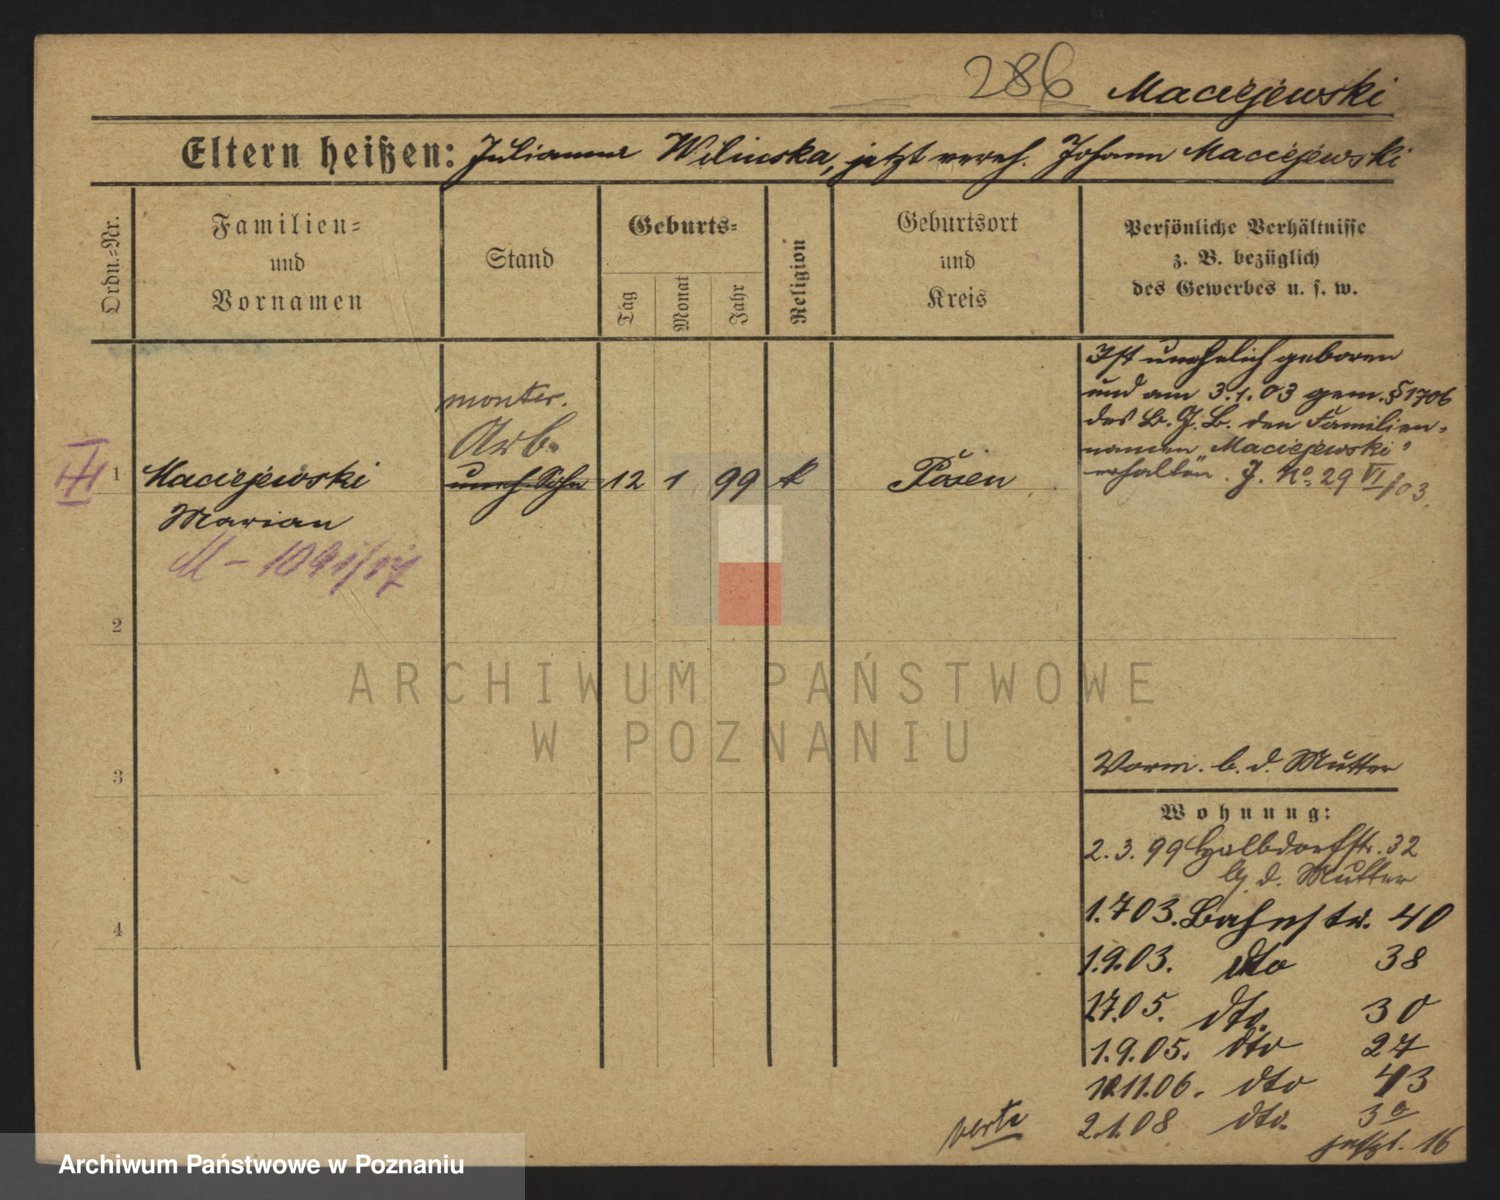 286 Maciejewski
Eltern heißen: Julianna Wilinska, jetzt vereh. Johann Maciejewski
Ordn.-Nr.
Familien-
und
Vornamen
Stand
Geburts-
Tag
Monat
Jahr
Religion
Geburtsort
und
Kreis
Persönliche Verhältnisse
z. B. bezüglich
des Gewerbes u. s. w.
Ist unehelich geboren
und am 3.1.03 gem. § 1706
des B. G. B. den Familien-
namen "Maciejewski"
erhalten. J. No. 29 VI/03.
monter.
Arb.
1 Maciejewski uneh Sohn 12 1 99 k Posen
Marian
M - 1091/17
2
3
4
Vorm. b. d. Mutter
Wohnung:
2.3.99 Halbdorfstr. 32
b. d. Mutter
1.7.03. Bahnstr. 40
1.9.03. dto 38
1.7.05. dto. 30
1.9.05. dto 27
11.06. dto 43
2.1.08 dto. 3a
16
verte
ARCHIWUM PAŃSTWOWE
W POZNANIU
Archiwum Państwowe w Poznaniu